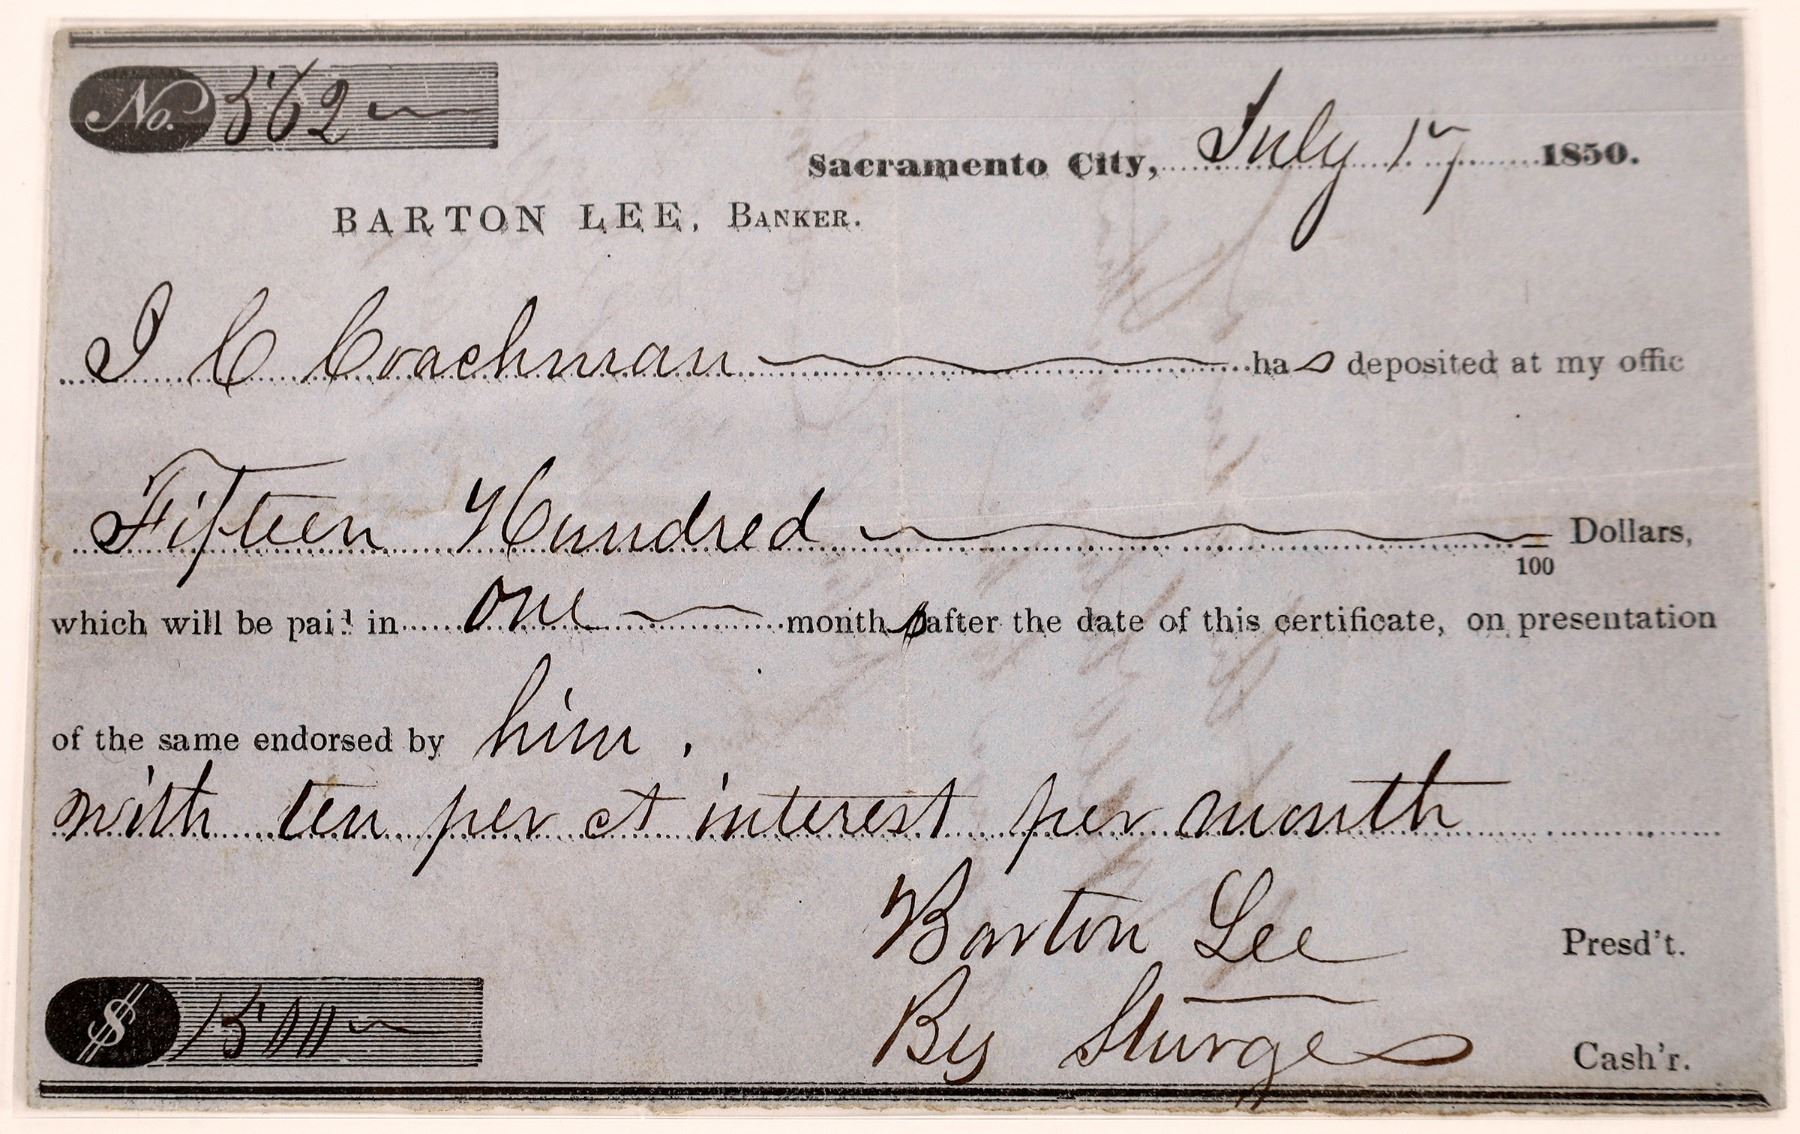 No. 562
Sacramento City, July 17 1850.
BARTON LEE, BANKER.
I C Coachman has deposited at my offic
Fifteen Hundred /100 Dollars,
which will be paid in one month after the date of this certificate, on presentation
of the same endorsed by him.
with ten per ct interest per month
Barton Lee Presd't.
By Sturges Cash'r.
$ 1500